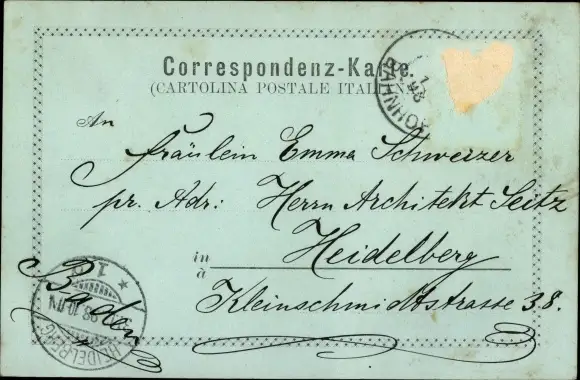 Correspondenz-Karte.
(CARTOLINA POSTALE ITALIANA)
BAHNHOF
An
Fräulein Emma Schweizer
pr. Adr: Herrn Architekt Seitz
in
à
Heidelberg
Kleinschmidtstrasse 38.
Baden
HEIDELBERG